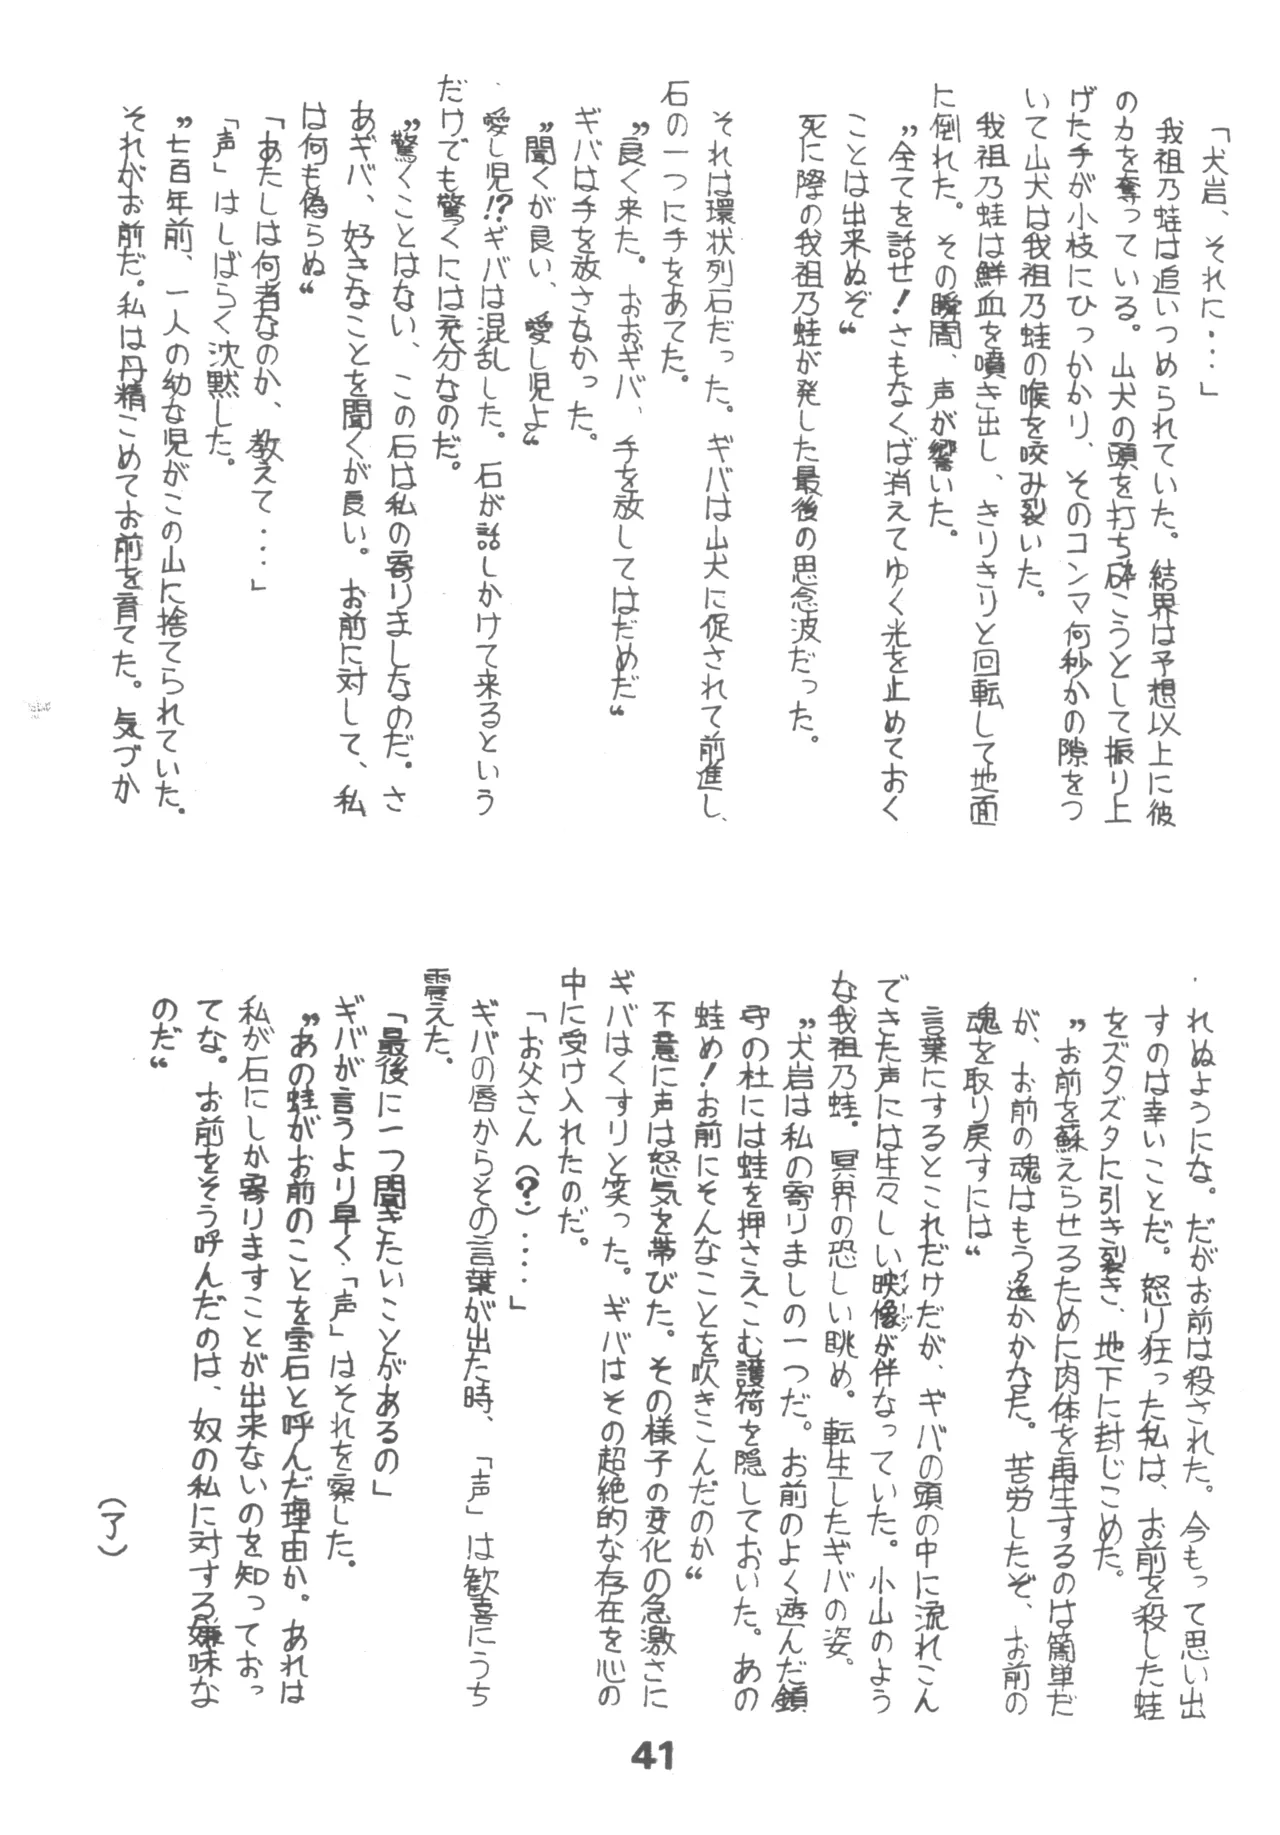 「犬岩、それに・・・」
我祖乃蛙は追いつめられていた。結界は予想以上に彼
の力を奪っている。山犬の頭を打ち砕こうとして振り上
げた手が小枝にひっかかり、そのコンマ何秒かの隙をつ
いて山犬は我祖乃蛙の喉を咬み裂いた。
我祖乃蛙は鮮血を噴き出し、きりきりと回転して地面
に倒れた。その瞬間、声が響いた。
〝全てを話せ！さもなくば消えてゆく光を止めておく
ことは出来ぬぞ〟
死に際の我祖乃蛙が発した最後の思念波だった。
それは環状列石だった。ギバは山犬に促されて前進し、
石の一つに手をあてた。
〝良く来た。おおギバ、手を放してはだめだ〟
ギバは手を放さなかった。
〝聞くが良い、愛し児よ〟
愛し児!?ギバは混乱した。石が話しかけて来るという
だけでも驚くには充分なのだ。
〝驚くことはない、この石は私の寄りましなのだ。さ
あギバ、好きなことを聞くが良い。お前に対して、私
は何も偽らぬ〟
「あたしは何者なのか、教えて・・・・」
「声」はしばらく沈黙した。
〝七百年前、一人の幼な児がこの山に捨てられていた。
それがお前だ。私は丹精こめてお前を育てた。気づか
れぬようにな。だがお前は殺された。今もって思い出
すのは辛いことだ。怒り狂った私は、お前を殺した蛙
をズタズタに引き裂き、地下に封じこめた。
〝お前を蘇えらせるために肉体を再生するのは簡単だ
が、お前の魂はもう遙かかなた。苦労したぞ、お前の
魂を取り戻すには〟
言葉にするとこれだけだが、ギバの頭の中に流れこん
できた声には生々しい映像が伴なっていた。小山のよう
イメージ
な我祖乃蛙。冥界の恐しい眺め。転生したギバの姿。
〝犬岩は私の寄りましの一つだ。お前のよく遊んだ鎮
守の杜には蛙を押さえこむ護符を隠しておいた。あの
蛙め！お前にそんなことを吹きこんだのか〟
不意に声は怒気を帯びた。その様子の変化の急激さに
ギバはくすりと笑った。ギバはその超絶的な存在を心の
中に受け入れたのだ。
「お父さん(？)・・・・」
ギバの唇からその言葉が出た時、「声」は歓喜にうち
震えた。
「最後に一つ聞きたいことがあるの」
ギバが言うより早く「声」はそれを察した。
〝あの蛙がお前のことを宝石と呼んだ理由か。あれは
私が石にしか寄りますことが出来ないのを知っておっ
てな。お前をそう呼んだのは、奴の私に対する嫌味な
のだ〟
（了）
41